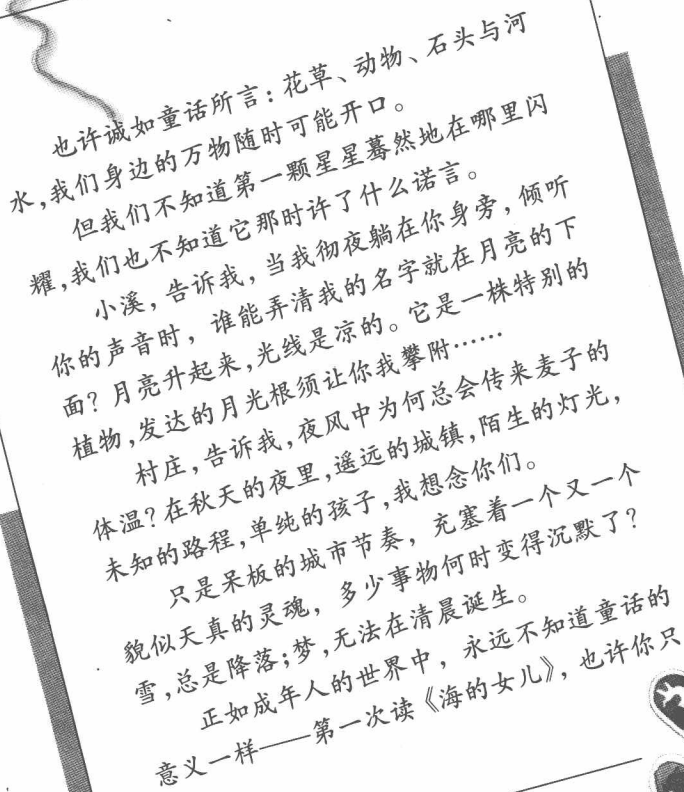 也许诚如童话所言：花草、动物、石头与河
水，我们身边的万物随时可能开口。
但我们不知道第一颗星星蓦然地在哪里闪
耀，我们也不知道它那时许了什么诺言。
小溪，告诉我，当我彻夜躺在你身旁，倾听
你的声音时，谁能弄清我的名字就在月亮的下
面？月亮升起来，光线是凉的。它是一株特别的
植物，发达的月光根须让你我攀附……
村庄，告诉我，夜风中为何总会传来麦子的
体温？在秋天的夜里，遥远的城镇，陌生的灯光，
未知的路程，单纯的孩子，我想念你们。
只是呆板的城市节奏，充塞着一个又一个
貌似天真的灵魂，多少事物何时变得沉默了？
雪，总是降落；梦，无法在清晨诞生。
正如成年人的世界中，永远不知道童话的
意义一样——第一次读《海的女儿》，也许你只